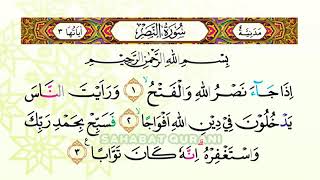 مَدَنِيَّة سُوْرَةُ النَّصْرِ اٰيَاتُهَا ٣
بِسْمِ اللهِ الرَّحْمٰنِ الرَّحِيْمِ
اِذَا جَاۤءَ نَصْرُ اللهِ وَالْفَتْحُ ۙ ١ وَرَاَيْتَ النَّاسَ
يَدْخُلُوْنَ فِيْ دِيْنِ اللهِ اَفْوَاجًا ۙ ٢ فَسَبِّحْ بِحَمْدِ رَبِّكَ
وَاسْتَغْفِرْهُ ۗ اِنَّهٗ كَانَ تَوَّابًا ٣
SAHABAT QURANI